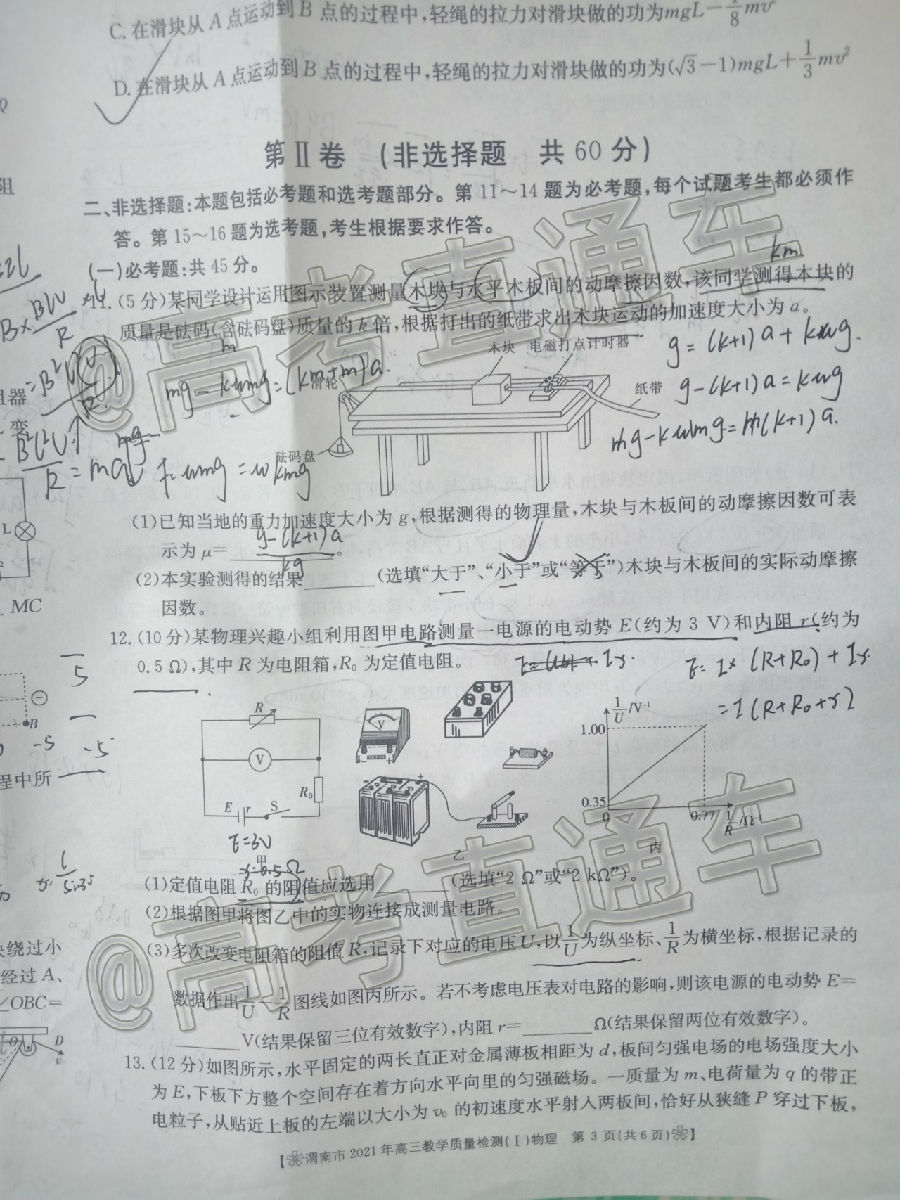 C. 在滑块从A点运动到B点的过程中,轻绳的拉力对滑块做的功为mgL-1/8 mv²
D. 在滑块从A点运动到B点的过程中,轻绳的拉力对滑块做的功为(√3-1)mgL+1/3 mv²
第Ⅱ卷 (非选择题 共60分)
二、非选择题:本题包括必考题和选考题部分。第11~14题为必考题,每个试题考生都必须作
答。第15~16题为选考题,考生根据要求作答。
(一)必考题:共45分。
km
11. (5分)某同学设计运用图示装置测量木块与水平木板间的动摩擦因数,该同学测得木块的
质量是砝码(含砝码盘)质量的k倍,根据打出的纸带求出木块运动的加速度大小为a。
m
g=(k+1)a+kug.
mg-kumg=(km+m)a.
g-(k+1)a=kug
mg-kumg=m(k+1)a.
f=umg=ukmg
木块 电磁打点计时器
纸带
滑轮
砝码盘
(1)已知当地的重力加速度大小为g,根据测得的物理量,木块与木板间的动摩擦因数可表
示为μ= g-(k+1)a/kg 。
(2)本实验测得的结果______(选填“大于”、“小于”或“等于”)木块与木板间的实际动摩擦
因数。
12. (10分)某物理兴趣小组利用图甲电路测量一电源的电动势E(约为3 V)和内阻r(约为
0.5 Ω),其中R为电阻箱,R₀为定值电阻。
E=I×(R+R₀)+Ir
=I(R+R₀+r)
R
V
R₀
E r S
E=3V
r=0.5Ω
甲
乙
1/U /V⁻¹
1.00
0.35
0
0.77
1/R /Ω⁻¹
丙
(1)定值电阻R₀的阻值应选用______(选填“2 Ω”或“2 kΩ”)。
(2)根据图甲将图乙中的实物连接成测量电路。
(3)多次改变电阻箱的阻值R,记录下对应的电压U,以1/U为纵坐标、1/R为横坐标,根据记录的
数据作出1/U-1/R图线如图丙所示。若不考虑电压表对电路的影响,则该电源的电动势E=
______V(结果保留三位有效数字),内阻r=______Ω(结果保留两位有效数字)。
13. (12分)如图所示,水平固定的两长直正对金属薄板相距为d,板间匀强电场的电场强度大小
为E,下板下方整个空间存在着方向水平向里的匀强磁场。一质量为m、电荷量为q的带正
电粒子,从贴近上板的左端以大小为v₀的初速度水平射入两板间,恰好从狭缝P穿过下板,
【渭南市2021年高三教学质量检测(Ⅰ)物理 第3页(共6页)】
@高考直通车
@高考直通车
阻
变
L
MC
B
程中所
块绕过小
经过A、
∠OBC=